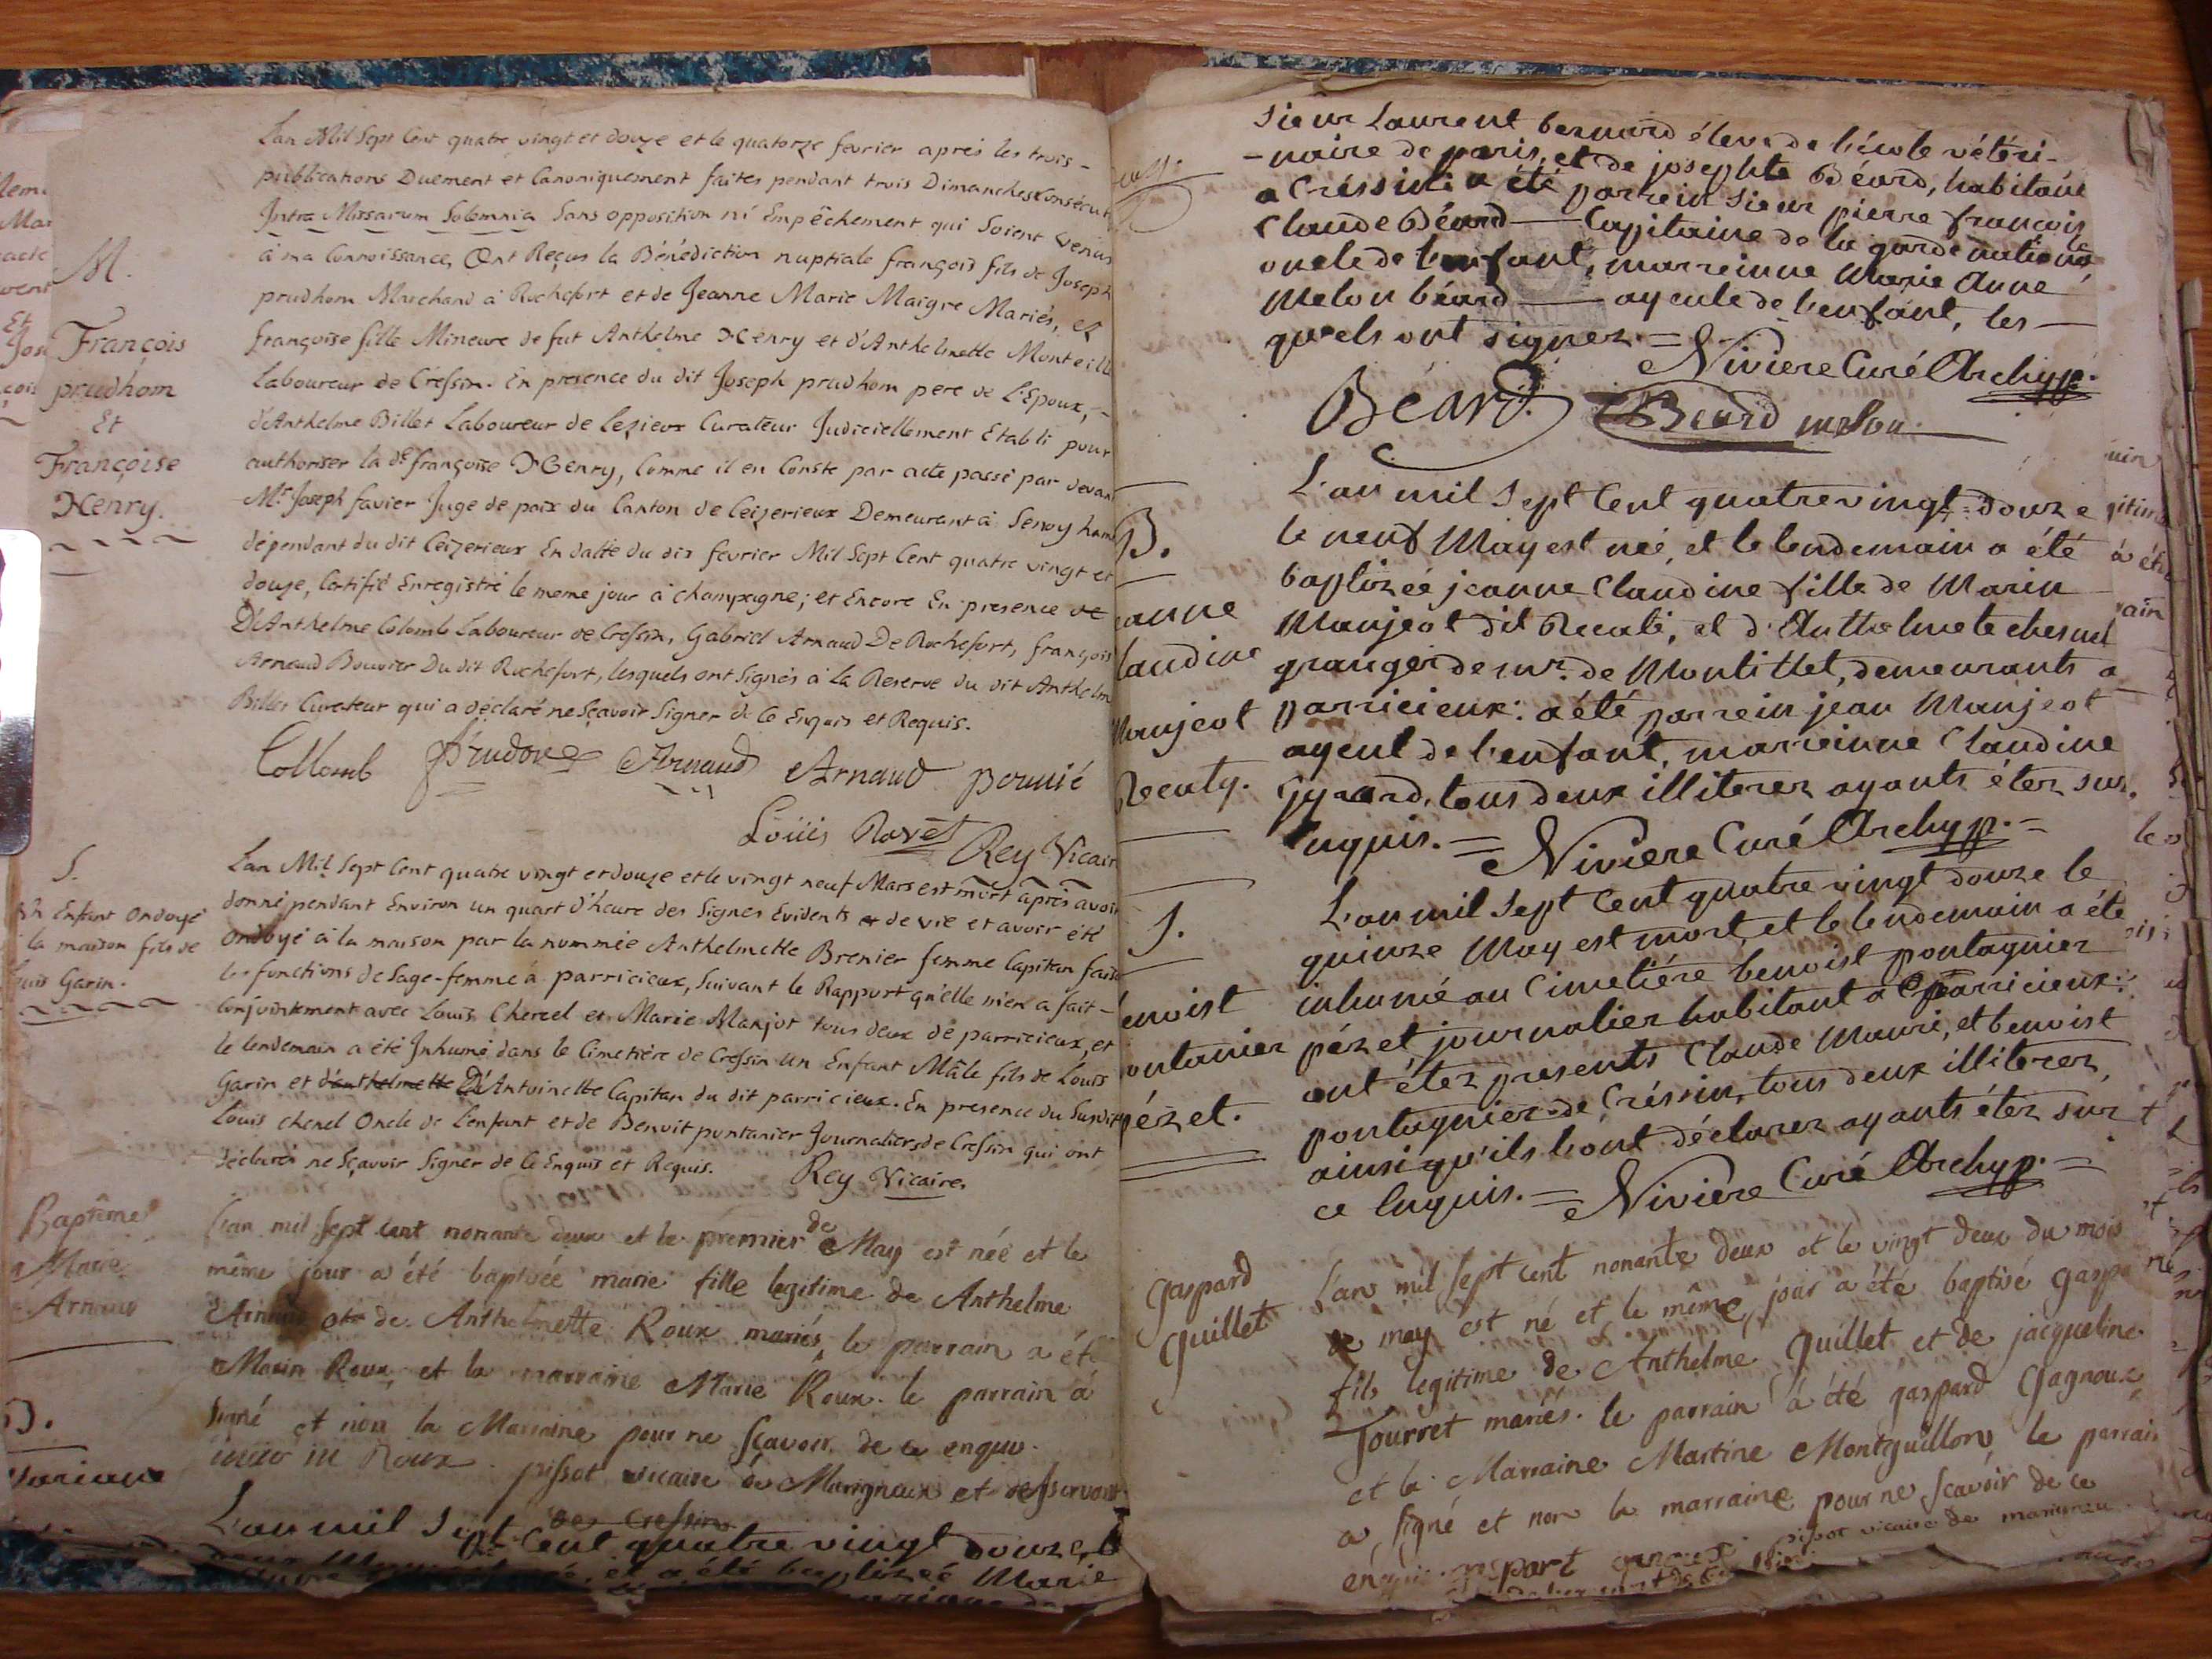 M.
François
prudhom
Et
Françoise
Henry.
L'an Mil Sept Cent quatre vingt et douze et le quatorze fevrier apres les trois -
publications Duement et Canoniquement faites pendant trois Dimanches Consécut
Intra Missarum Solemnia Sans opposition ni Empêchement qui Soient Venus
à ma Connoissance, Ont Reçus la Bénédiction nuptiale françois fils de Joseph
prudhom Marchand à Rochefort et de Jeanne Marie Maigre Mariés, et
françoise fille Mineure de fut Anthelme Henry et d'Anthelmette Monteill
Laboureur de Cressin. En presence du dit Joseph prudhom pere de L'Epoux, -
d'Anthelme Billet Laboureur de Lezieux Curateur Judiciellement Etabli pour
authoriser la de françoise Henry, Comme il en Conste par acte passé par devan
Mr Joseph favier Juge de paix du Canton de Ceizerieux Demeurant à Senoy ham
dépendant du dit Ceizerieux En datte du dix fevrier Mil Sept Cent quatre vingt et
douze, Certifié Enregistré le meme jour à champagne; et Encore En presence de
D'Anthelme Colomb Laboureur de Cressin, Gabriel Arnaud De Rochefort, françois
Arnaud Bouvier Du dit Rochefort, lesquels ont Signés à la Reserve du dit Anthelm
Billet Curateur qui a déclaré ne Sçavoir Signer de Ce Enquis et Requis.
Collomb Arnaud Arnaud
Loüis Ravet Rey Vicair
S.
Un Enfant Ondoyé
à la maison fils de
Louis Garin.
L'an Mil Sept Cent quatre vingt et douze et le vingt neuf Mars est mort après avoir
donné pendant Environ un quart d'heure des Signes Evidents de vie et avoir été
ondoyé à la maison par la nommée Anthelmette Brenier femme Capitan faite
les fonctions de Sage-femme à parricieux, Suivant le Rapport qu'elle m'en a fait -
Conjointement avec Louis Chercel et Marie Manjot tous deux de parricieux, et
le lendemain a été Inhumé dans le Cimetière de Cressin Un Enfant Mâle fils de Louis
Garin et d'anthelmette D'Antoinette Capitan du dit parricieux. En presence du Susdit
Louis cherel Oncle de L'enfant et de Benoit puntanier Journaliers de Cressin qui ont
déclaré ne Sçavoir Signer de Ce Enquis et Requis. Rey Vicaire.
Baptême
Marie
Arnaud
L'an mil sept cent nonante deux et le premier de May est née et le
même jour a été baptisée marie fille legitime de Anthelme
Arnaud et de Anthelmette Roux mariés, le parrain a été
Marin Roux, et la marraine Marie Roux. le parrain à
signé et non la Marraine pour ne sçavoir de ce enquis.
Roux pissot vicaire de Marignieux et desservant
de Cressin
L'an mil Sept Cent quatre vingt douze, le
née, et a été baptizeé Marie
Sieur Laurent bernard éleve de l'école vétéri-
-naire de paris, et de josephte Béard, habitant
a Créssin: a été parrein Sieur pierre françois
Claude Béard — Capitaine de la garde nationale
oncle de l'enfant, marreinne Marie Anne
Melon béard — ayeule de l'enfant, les —
quels ont signez. = Niviere Curé Archyp.
Béard Beard melon
B.
jeanne
Claudine
Manjeot
Recaty.
L'an mil Sept Cent quatre vingt-douze
le neuf May est neé, et le lendemain a été
baptizeé jeanne Claudine fille de Marin
Manjeot dit Recati, et d'Anthelmete chesnel
granger de mr. de Montillet, demeurants a
parricieux: a été parrein jean Manjeot
ayeul de l'enfant, marreinne Claudine
Gyrard, tous deux illiterez ayants étez sur.
Enquis. = Niviere Curé Archyp. =
S.
benoist
pontanier
pézet.
L'an mil Sept Cent quatre vingt douze le
quinze May est mort, et le lendemain a été
inhumé au Cimetiére benoist pontagnier
pézet journalier habitant a parricieux:
ont étez presents Claude Mauri, et benoist
pontagnier de Créssin, tous deux illiterez,
ainsi qu'ils l'ont déclarez ayants étez sur
ce Enquis. = Niviere Curé Archyp. =
gaspard
guillet
L'an mil sept cent nonante deux et le vingt deux du mois
de may est né et le même jour a été baptisé gaspa
fils legitime de Anthelme guillet et de jacqueline
Tourret mariés. le parrain à été gaspard Gagnoux
et la Marraine Martine Montguillon, le parrain
a signé et non la marraine pour ne scavoir de ce
enquis. gaspart pissot vicaire de marignieu